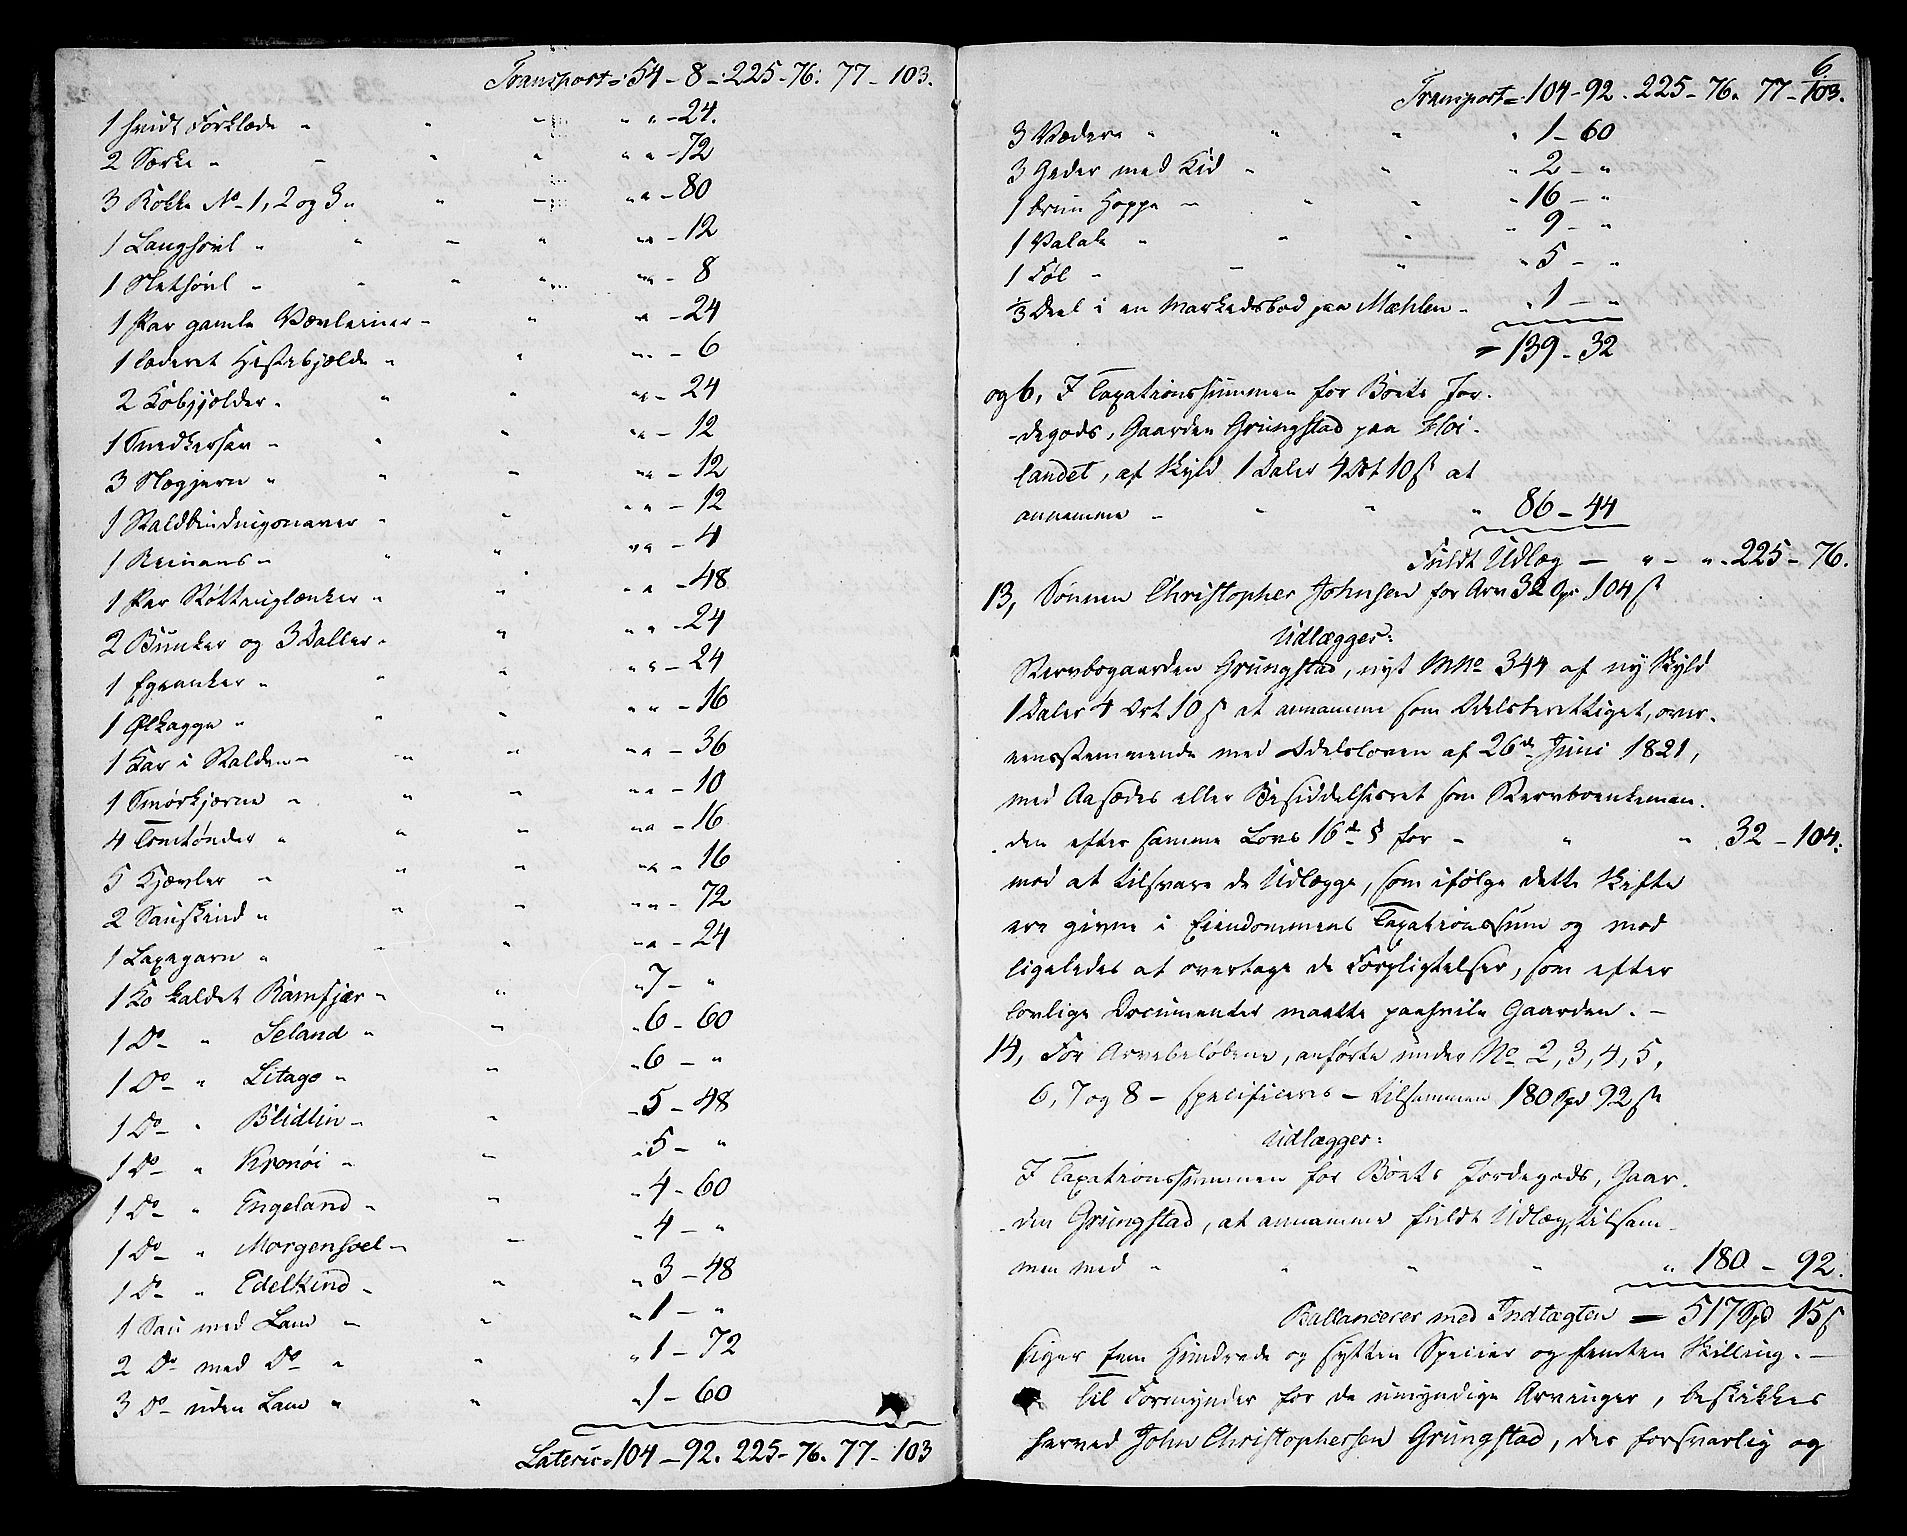 Transport = 54 - 8 - 225 - 76. 77 - 103.
1 hvidt Forklæde " " " " " - 24.
2 Særke " " " " " " - 72
3 Rokke No 1, 2 og 3 " " " " " - 80
1 Langhøvl " " " " " " - 12
1 Sletthøvl " " " " " " - 8
1 Par gamle " " " - 24
1 Hestebjælde " " " " - 6
2 Kobjælder " " " " " - 24
1 " " " " - 12
3 " " " " - 12
1 " " " " - 12
1 " " " " - 4
1 Par " " " " - 48
2 Bunker og 3 Daller " " " " - 24
1 Egeanker " " " " " - 24
1 Ølkagge " " " " " - 16
1 Kar i Stalden " " " " " - 36
1 Smørkjærne " " " " " - 10
4 Tomtønder " " " " " - 16
5 Kjævler " " " " " - 16
2 Sauskind " " " " " - 72
1 Laxegarn " " " " " - 24
1 Ko kaldet Ramfjær " " " 7 - "
1 Do " Seland " " " 6 - 60
1 Do " Litago " " " 6 - "
1 Do " Blidlin " " 5 - 48
1 Do " Kronøi " " " 5 - "
1 Do " Engeland " " " 4 - 60
1 Do " Morgensoel " " " 4 - "
1 Do " Edelkind " " " 3 - 48
1 Sau med Lam " " " 1 - "
2 Do med Do " " " 1 - 72
3 Do uden Lam " " " 1 - 60
Lateris = 104 - 92. 225 - 76. 77 - 103
6
Transport = 104 - 92. 225 - 76. 77 - 103.
3 Vædere " " " " 1 - 60
3 Geder med Kid " " " 2 - "
1 brun Hoppe " " " " 16 - "
1 Valak " " " " 9 - "
1 Føl " " " " 5 - "
1/3 Deel i en Markedsbod paa Mæhlen " " 1 - "
= 139 - 32
og 6, I Taxationssummen for Boets Jor-
degods, Gaarden Grungstad paa Høi-
landet, af Skyld 1 Daler 4 Ort 10 ß at
annamme " " " " 86 - 44
Fuldt Udlæg - " - " - 225 - 76.
13, Sønnen Christopher Johnsen for Arv 32 Spd 104 ß
Udlægges:
Stervbogaarden Grungstad, nyt MNo 344 af ny Skyld
1 Daler 4 Ort 10 ß at annamme som Odelsberettiget, over-
eensstemmende med Odelsloven af 26de Juni 1821,
med Aasædes eller Besiddelsesret som Stervboenkeman-
den efter samme Lovs 16de § for " " " 32 - 104.
mod at tilsvare de Udlægge, som ifølge dette Skifte
ere givne i Eiendommens Taxationssum og mod
ligeledes at overtage de Forpligtelser, som efter
lovlige Documenter maatte paahvile Gaarden. -
14, For Arvebeløbene, anførte under No 2, 3, 4, 5,
6, 7 og 8 - specificeres - tilsammen 180 Spd 92 ß
Udlægges:
I Taxationssummen for Boets Jordegods, Gaar-
den Grungstad, at annamme fuldt Udlæg, tilsam-
men med " " " " " 180 - 92.
Ballancerer med Indtægten = 517 Spd 15 ß
siger fem Hundrede og sytten Specier og femten Skilling. -
Til Formynder for de umyndige Arvinger, beskikkes
herved John Christophersen Grungstad, der forsvarlig og